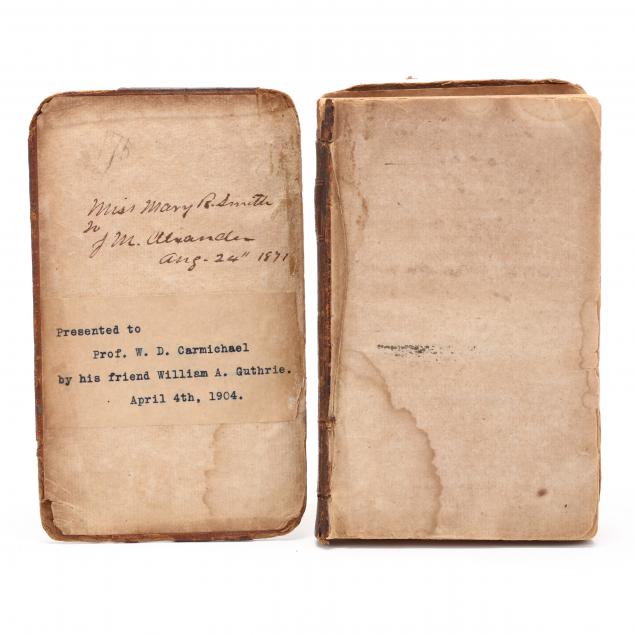 Miss Mary R. Smith
to
J. M. Alexander
Aug. 24" 1871
Presented to
Prof. W. D. Carmichael
by his friend William A. Guthrie.
April 4th, 1904.